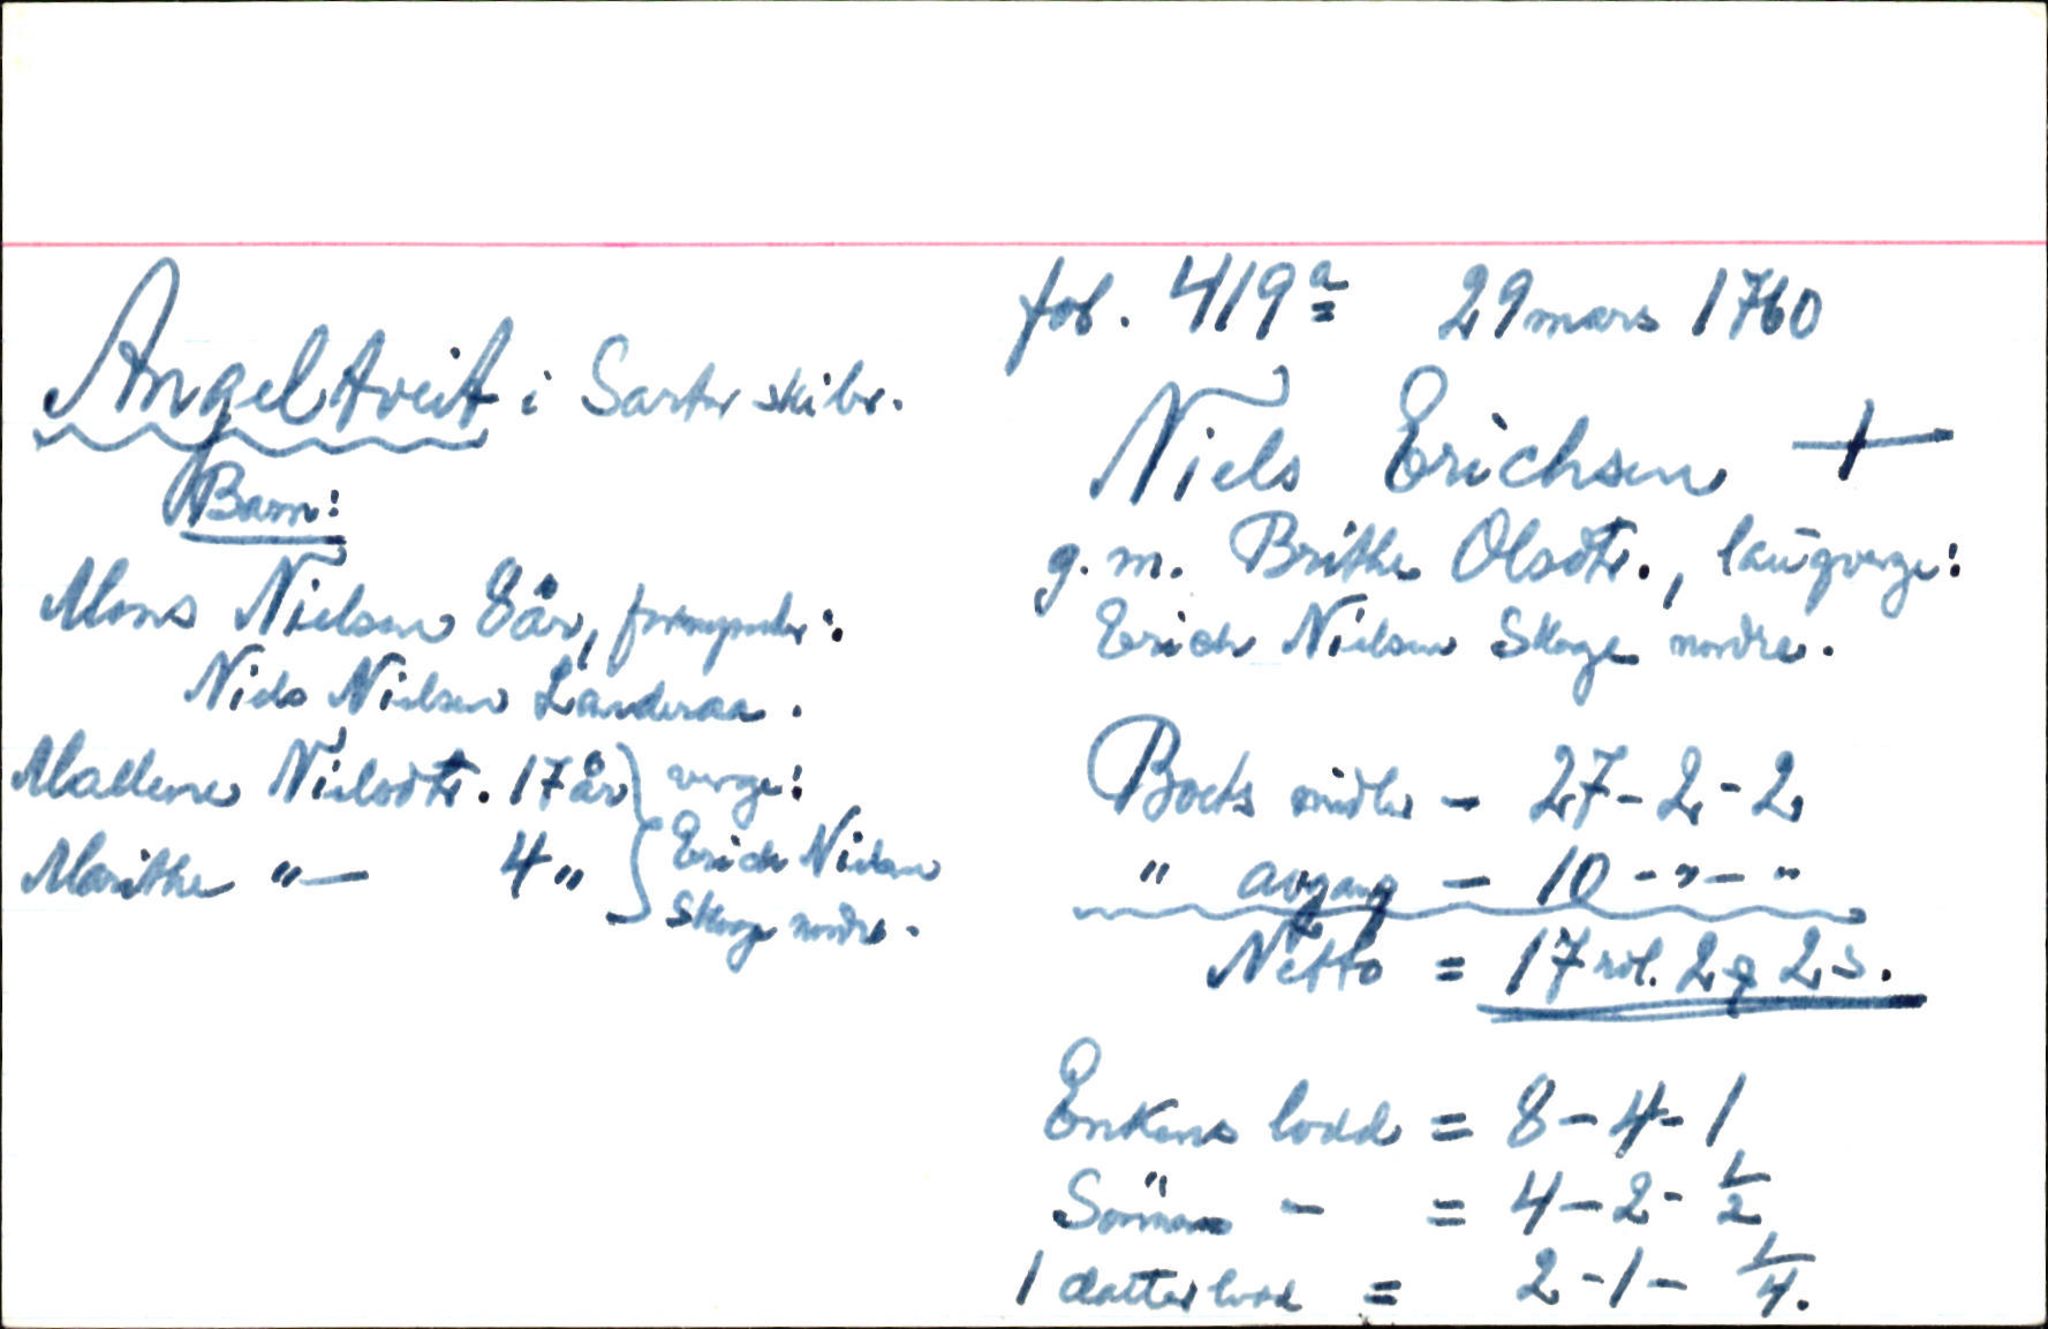 Angeltveit i Sartor skibr.
Barn:
Mons Nielsen 8 år, formynder:
Niels Nielsen Landeraa.
Mallene Nielsdtr. 17 år verge:
Marithe "— 4 " Erich Nielsen
Skoge nordre.
fol. 419a 29 mars 1760
Niels Erichsen +
g. m. Brithe Olsdtr., laugverge:
Erich Nielsen Skoge nordre.
Boets midler - 27-2-2
" avgang - 10-"-"
Netto = 17 rdl. 2 q 2 s.
Enkens lodd = 8-4-1
Sönnens - = 4-2-1/2
1 datterlodd = 2-1-1/4.